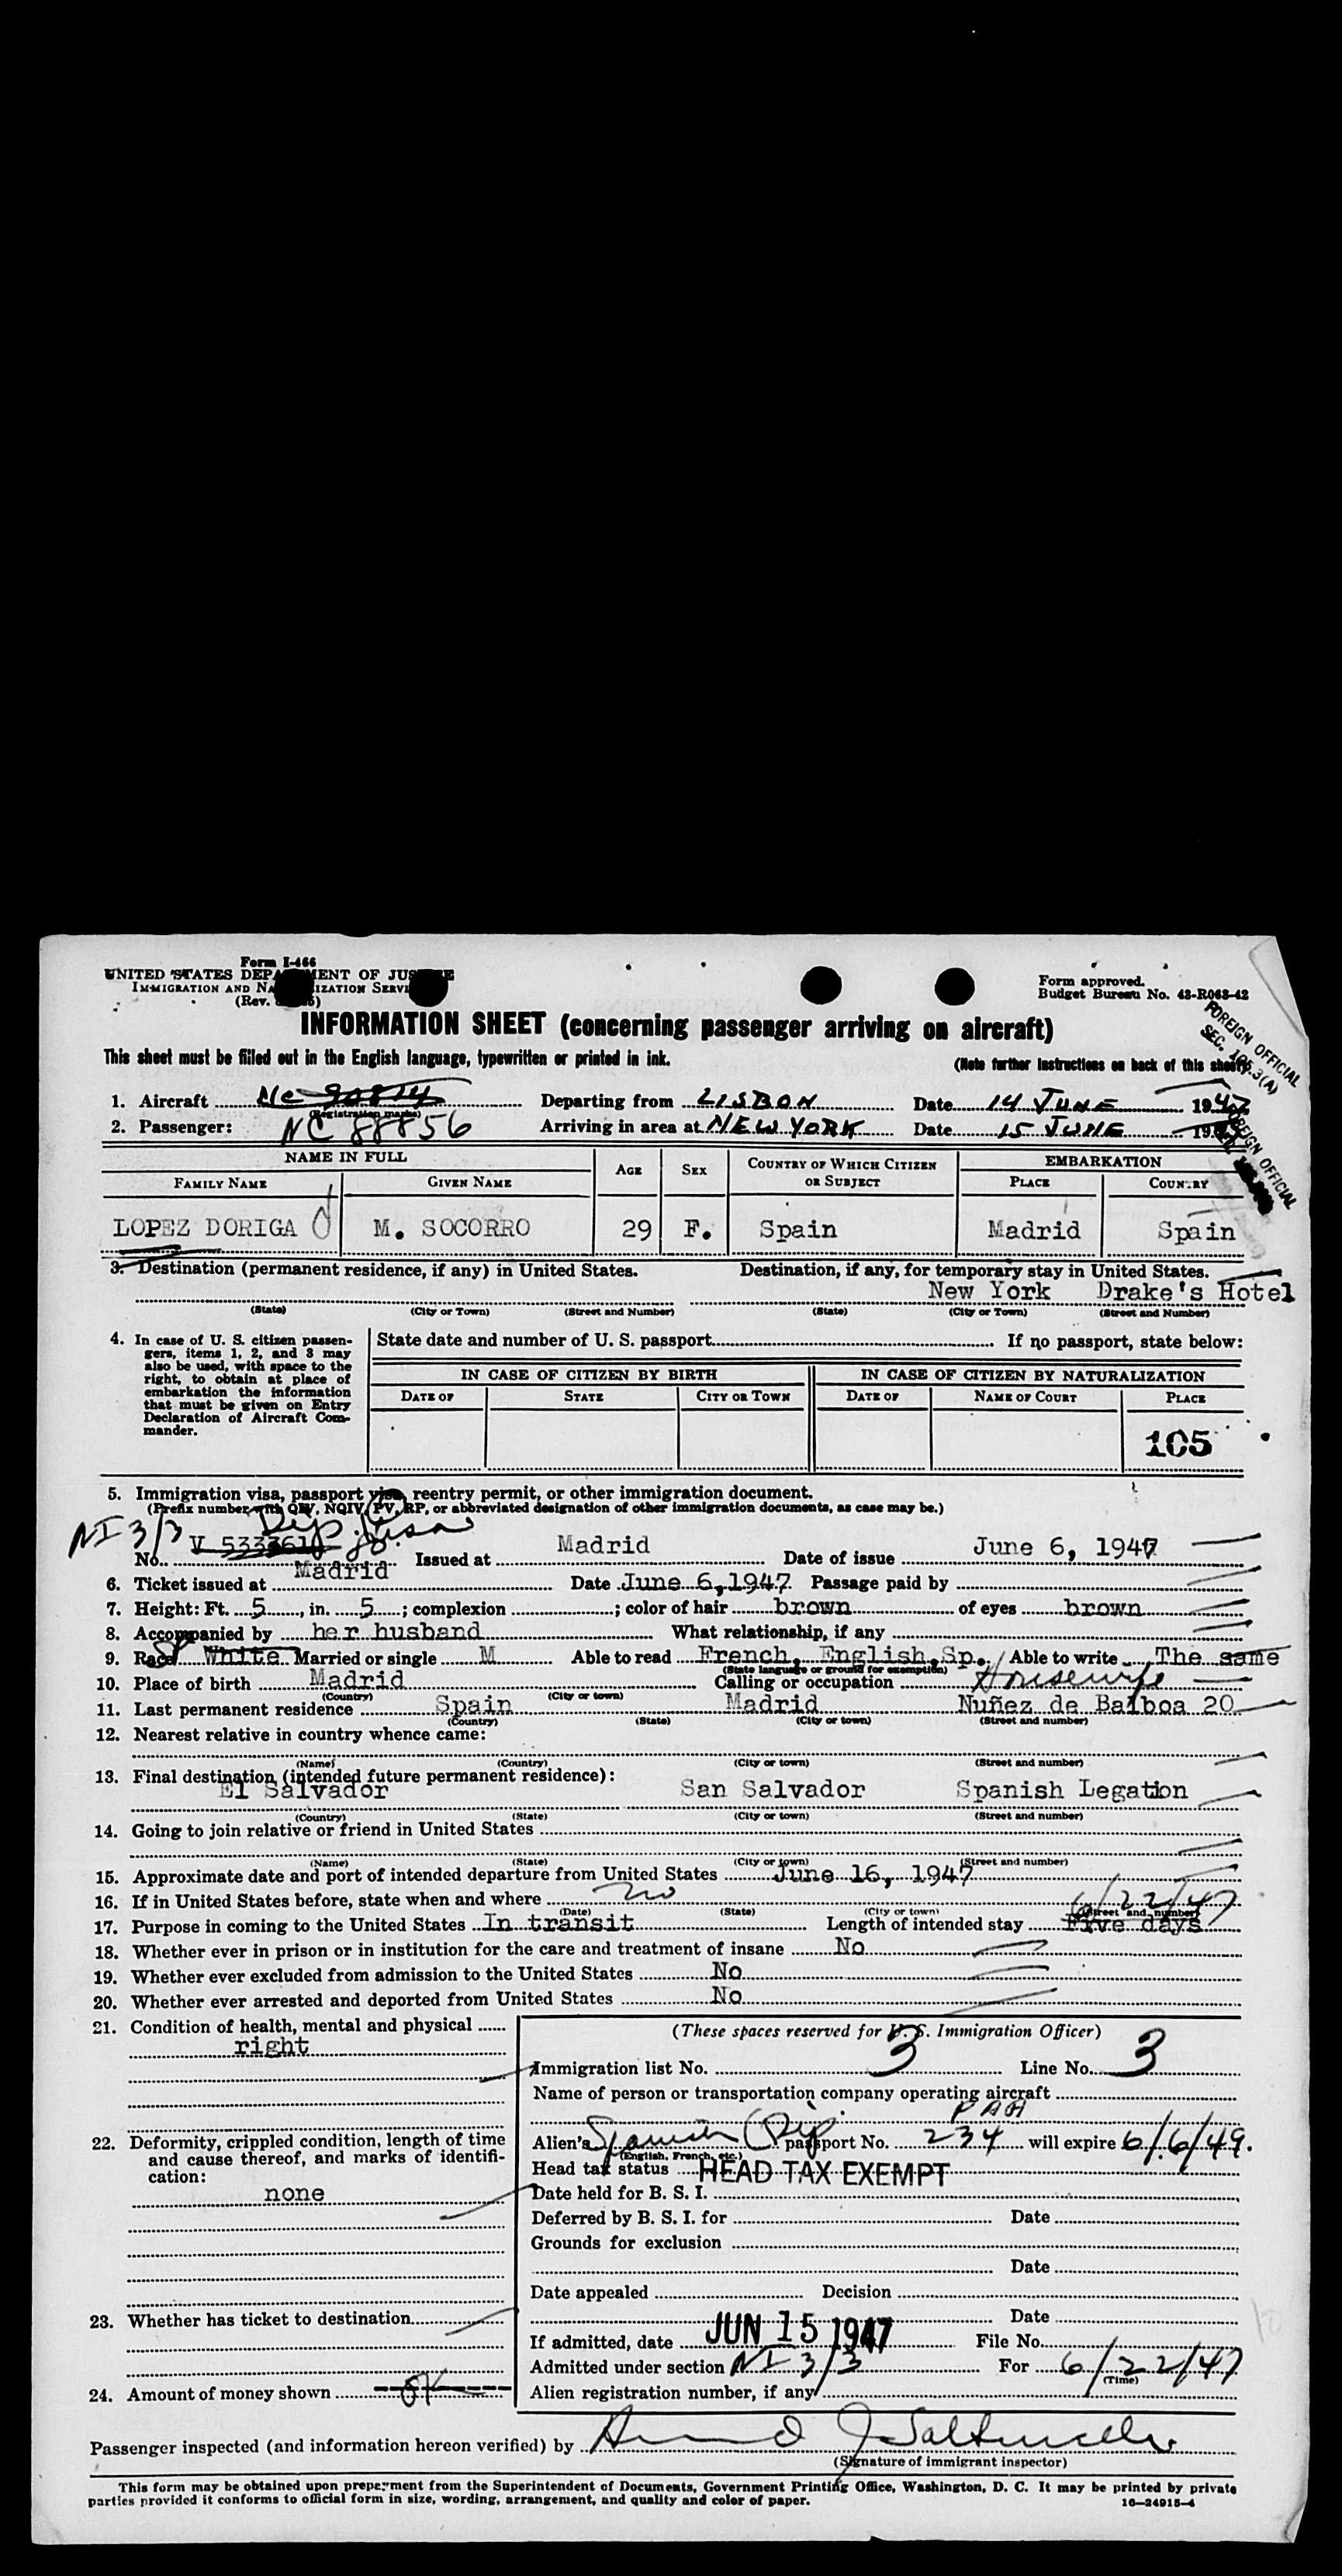 Form I-466
UNITED STATES DEPA MENT OF JUS CE
IMMIGRATION AND NA IZATION SERVI
(Rev. )
Form approved.
Budget Bureau No. 43-R063-42
INFORMATION SHEET (concerning passenger arriving on aircraft)
FOREIGN OFFICIAL
SEC. 105.3(A)
This sheet must be filled out in the English language, typewritten or printed in ink.
(Note further instructions on back of this sheet)
1. Aircraft NC 90814 Departing from LISBON Date 14 JUNE 1947
(Registration marks)
2. Passenger: NC 88856 Arriving in area at NEW YORK Date 15 JUNE 19
FOREIGN OFFICIAL
NAME IN FULL AGE SEX COUNTRY OF WHICH CITIZEN OR SUBJECT EMBARKATION
FAMILY NAME GIVEN NAME PLACE COUNTRY
LOPEZ DORIGA M. SOCORRO 29 F. Spain Madrid Spain
3. Destination (permanent residence, if any) in United States. Destination, if any, for temporary stay in United States.
New York Drake's Hotel
(State) (City or Town) (Street and Number) (State) (City or Town) (Street and Number)
4. In case of U. S. citizen passen-
gers, items 1, 2, and 3 may
also be used, with space to the
right, to obtain at place of
embarkation the information
that must be given on Entry
Declaration of Aircraft Com-
mander.
State date and number of U. S. passport If no passport, state below:
IN CASE OF CITIZEN BY BIRTH IN CASE OF CITIZEN BY NATURALIZATION
DATE OF STATE CITY OR TOWN DATE OF NAME OF COURT PLACE
105
5. Immigration visa, passport visa, reentry permit, or other immigration document.
(Prefix number with QIV, NQIV, PV, RP, or abbreviated designation of other immigration documents, as case may be.)
NI 3/3 Dip. Visa
No. V 533361 Issued at Madrid Date of issue June 6, 1947
6. Ticket issued at Madrid Date June 6,1947 Passage paid by
7. Height: Ft. 5, in. 5; complexion ; color of hair brown of eyes brown
8. Accompanied by her husband What relationship, if any
9. Race Sp White Married or single M Able to read French, English,Sp. Able to write The same
(State language or ground for exemption)
10. Place of birth Madrid Calling or occupation Housewife
(Country) (City or town)
11. Last permanent residence Spain Madrid Nuñez de Balboa 20
(Country) (State) (City or town) (Street and number)
12. Nearest relative in country whence came:
(Name) (Country) (City or town) (Street and number)
13. Final destination (intended future permanent residence):
El Salvador San Salvador Spanish Legation
(Country) (State) (City or town) (Street and number)
14. Going to join relative or friend in United States
(Name) (State) (City or town) (Street and number)
15. Approximate date and port of intended departure from United States June 16, 1947
16. If in United States before, state when and where no 6/22/47
(Date) (State) (City or town) (Street and number)
17. Purpose in coming to the United States In transit Length of intended stay Five days
18. Whether ever in prison or in institution for the care and treatment of insane No
19. Whether ever excluded from admission to the United States No
20. Whether ever arrested and deported from United States No
21. Condition of health, mental and physical
right
22. Deformity, crippled condition, length of time
and cause thereof, and marks of identifi-
cation:
none
23. Whether has ticket to destination
24. Amount of money shown OK
(These spaces reserved for U. S. Immigration Officer)
Immigration list No. 3 Line No. 3
Name of person or transportation company operating aircraft
PAA
Alien's Spanish (Dip. passport No. 234 will expire 6/6/49.
(English, French, etc.)
Head tax status HEAD TAX EXEMPT
Date held for B. S. I.
Deferred by B. S. I. for Date
Grounds for exclusion
Date
Date appealed Decision
Date
If admitted, date JUN 15 1947 File No.
Admitted under section NI 3/3 For 6/22/47
(Time)
Alien registration number, if any
Passenger inspected (and information hereon verified) by
(Signature of immigrant inspector)
This form may be obtained upon prepayment from the Superintendent of Documents, Government Printing Office, Washington, D. C. It may be printed by private
parties provided it conforms to official form in size, wording, arrangement, and quality and color of paper.
16—24915-4